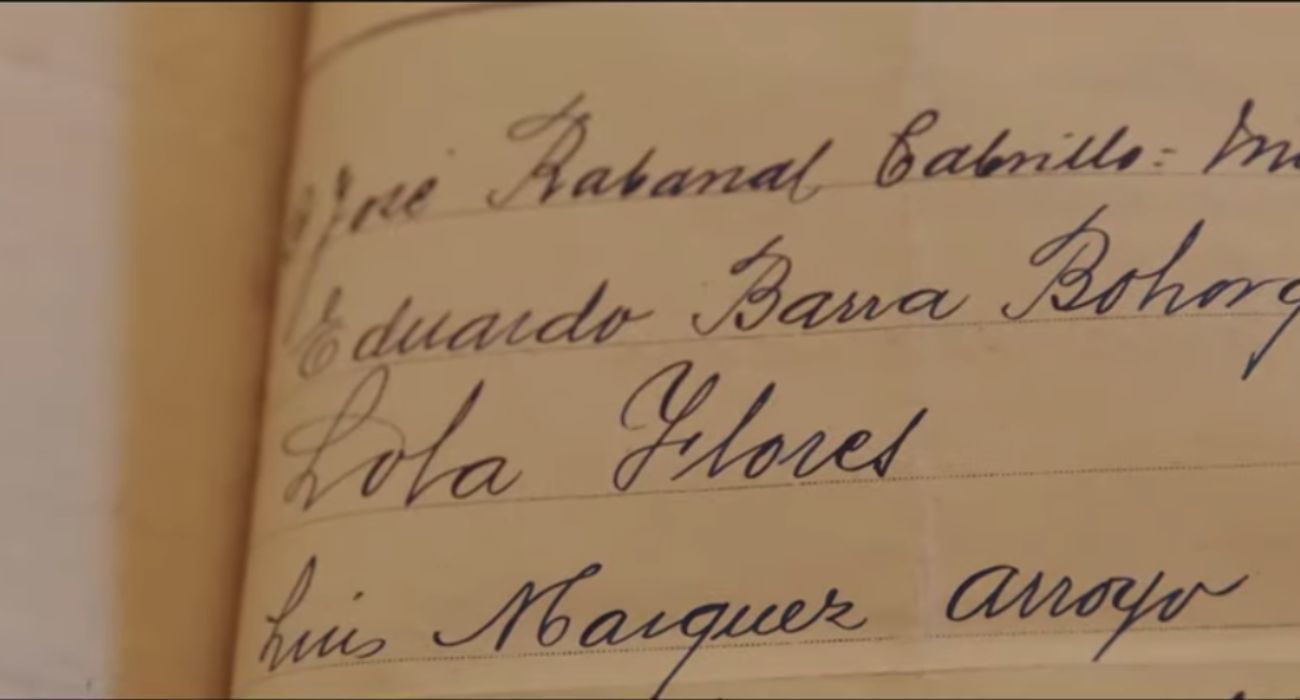 José Rabanal Cabrillo:
Eduardo Barra
Lola Flores
Luis Marquez Arroyo